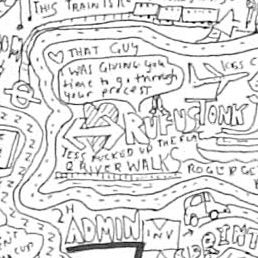 THIS TRAIN IS A
THAT GUY
WAS GIVING YOU
time to go through
your process
CBS C
RUFUS TONK
JESS FUCKED UP THE FLAT
RIVER WALKS
ROGER GE
2H
ADMIN
INV
PRINT
CUP